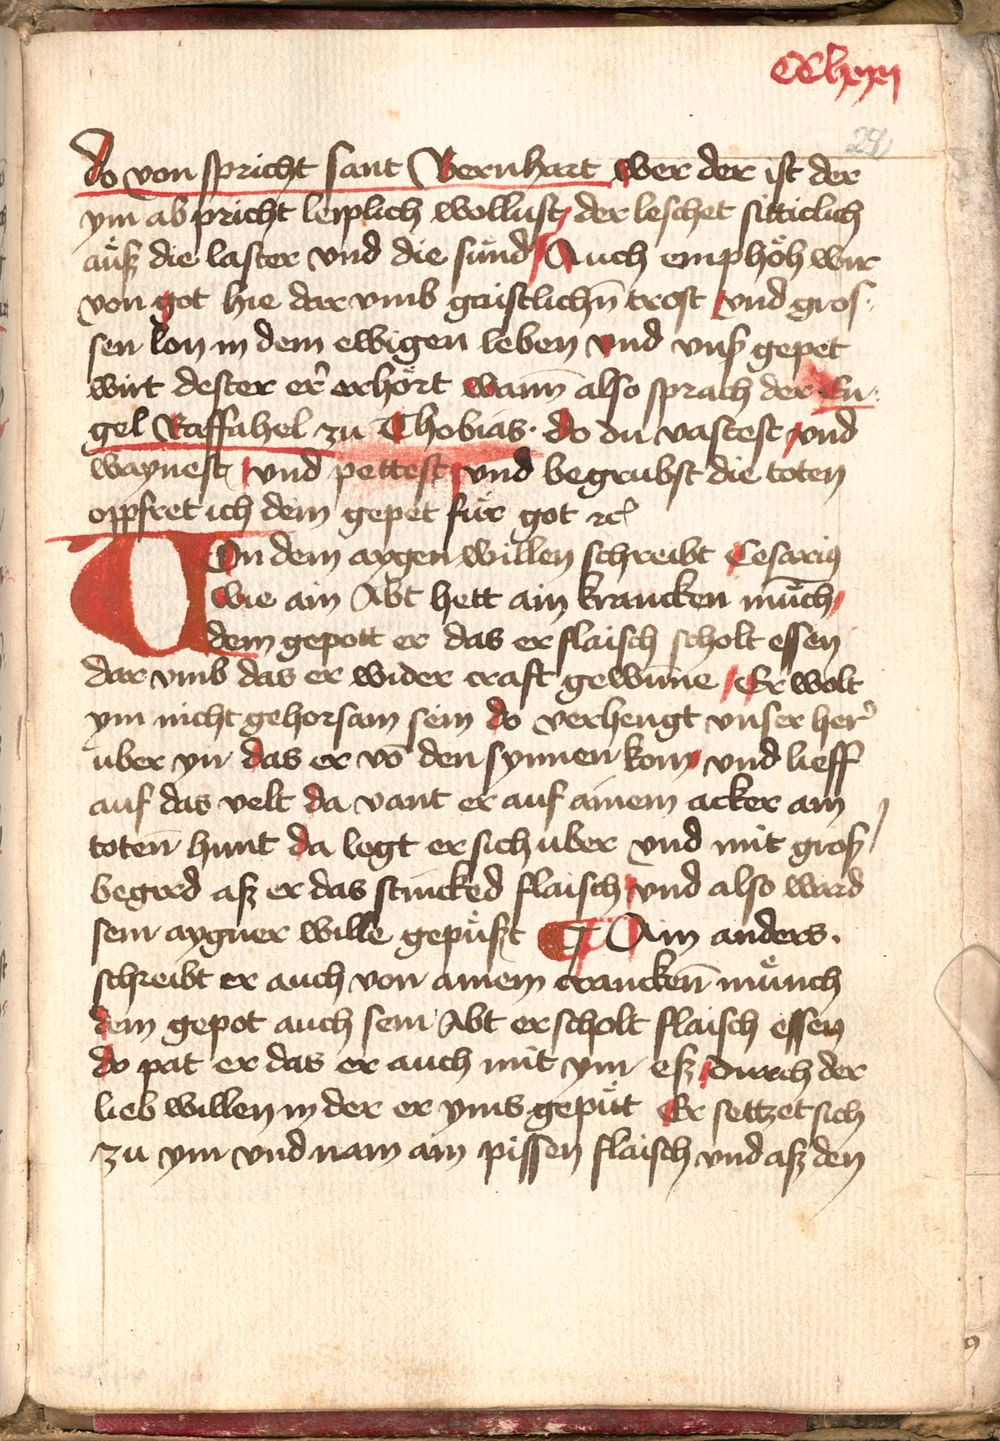 do von spricht sant Bernhart wer der ist der
ym ab pricht leiplich wollust / der leschet sitticlich
auͤß die laster vnd die suͤnd / Auch emphoͤh wir
von got hie dar vmb gaistlichn̄ trost vnd gros-
sen lon in dem ewigen leben vnd vnß gepet
wirt dester er̄ erhoͤrt wann̄ also sprach der En-
gel Raffahel zu Thobias · do du vastest / vnd
waynest / vnd pettest / vnd begrubst die toten
oppfret ich dem gepet fuͤr got ꝛc̄
Von dem aygen willen schreibt Cesariꝰ
wie ain Abt hett ain krancken muͤch /
dem gepott er das er flaisch scholt essen
dar vmb das er wider craft gewin̄ne / Er wolt
ym nicht gehorsam sein do verhengt vnser her̄
uͤber yn das er vō den synnen kom / vnd lieff
auf das velt da vant er auf ainem acker ain
toten̄ hunt da legt er sich uͤber vnd mit groß /
begerd aß er das stincked flaisch / vnd also ward
sein aygner wille gepuͤßt ¶ Ain anders ·
schreibt er auch von ainem crancken̄ muͤnch
dem gepot auch sein Abt er scholt flaisch essen
do pat er das er auch mit ym eß / durch der
lieb willen in der er yms gepuͤt Er settzet sich
zu ym vnd nam ain pissen flaisch vnd aß den